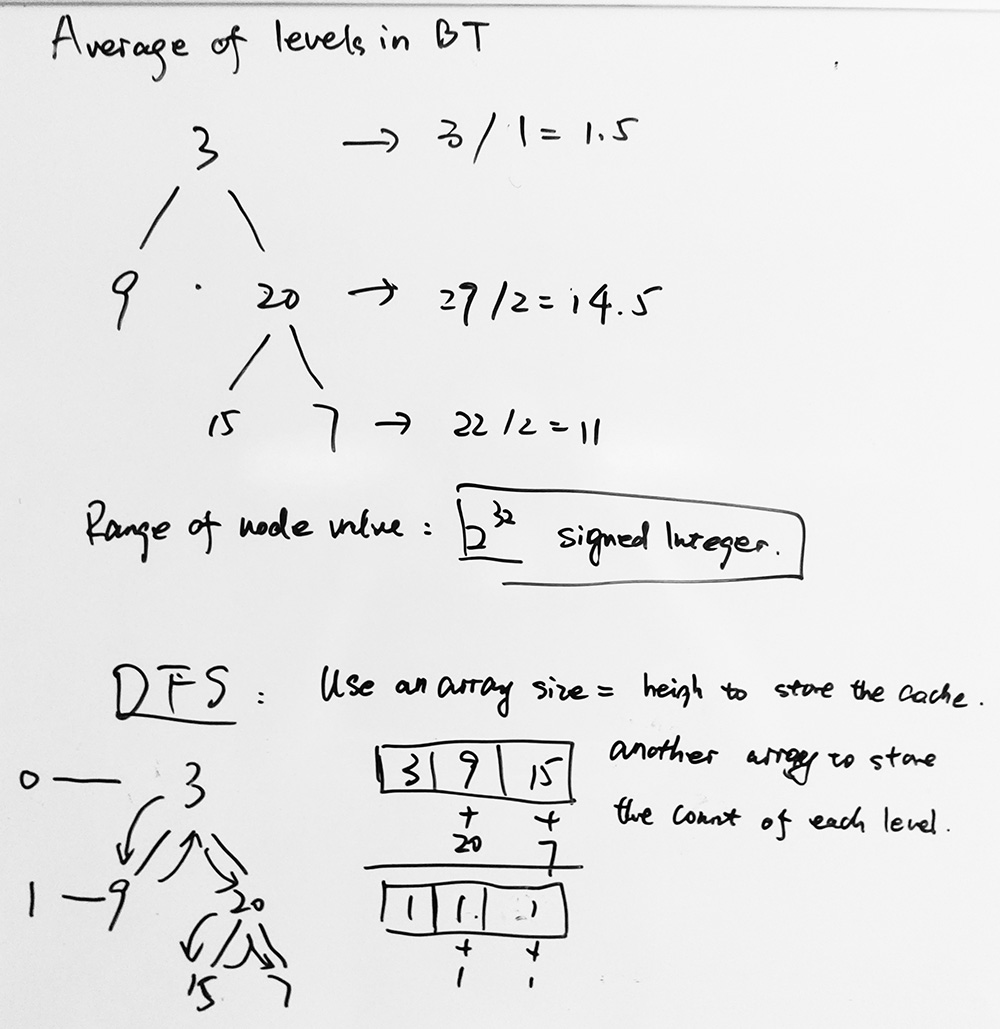 Average of levels in BT
3 → 3 / 1 = 1.5
9 20 → 29 / 2 = 14.5
15 7 → 22 / 2 = 11
Range of node value : 2^32 signed Integer.
DFS : Use an array size = heigh to store the cache.
another array to store
the count of each level.
0 — 3
3 9 15
+ +
20 7
1 — 9
20
1 1 1
+ +
1 1
15 7